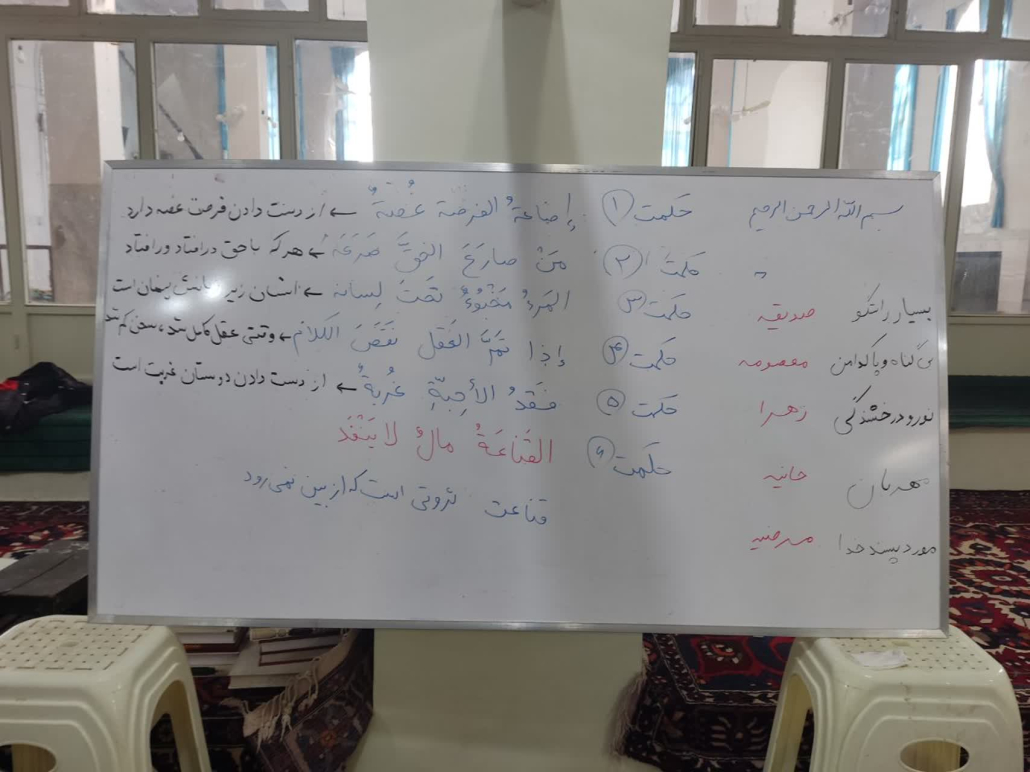 بسم الله الرحمن الرحیم
حکمت ۱ إضاعةُ الفرصة غُصةٌ ← از دست دادن فرصت غصه دارد
حکمت ۲ مَنْ صارَعَ الحَقَّ صَرَعَهُ ← هر که با حق در افتاد ور افتاد
حکمت ۳ المَرءُ مَخْبُوءٌ تَحتَ لِسانه ← انسان زیر پنهان است
حکمت ۴ إذا تَمَّ العَقل نَقَصَ الکَلام ← وقتی عقل کامل شد، سخن کم شد
حکمت ۵ فَقدُ الأحِبّةِ غُربةٌ ← از دست دادن دوستان غربت است
حکمت ۶ القَناعَةُ مالٌ لا یَنْفَد
قناعت ثروتی است که از بین نمی رود
بسیار راستگو صدیقه
بی گناه و پاکدامن معصومه
نور و درخشندگی زهرا
مهربان حانیه
مورد پسند خدا مرضیه